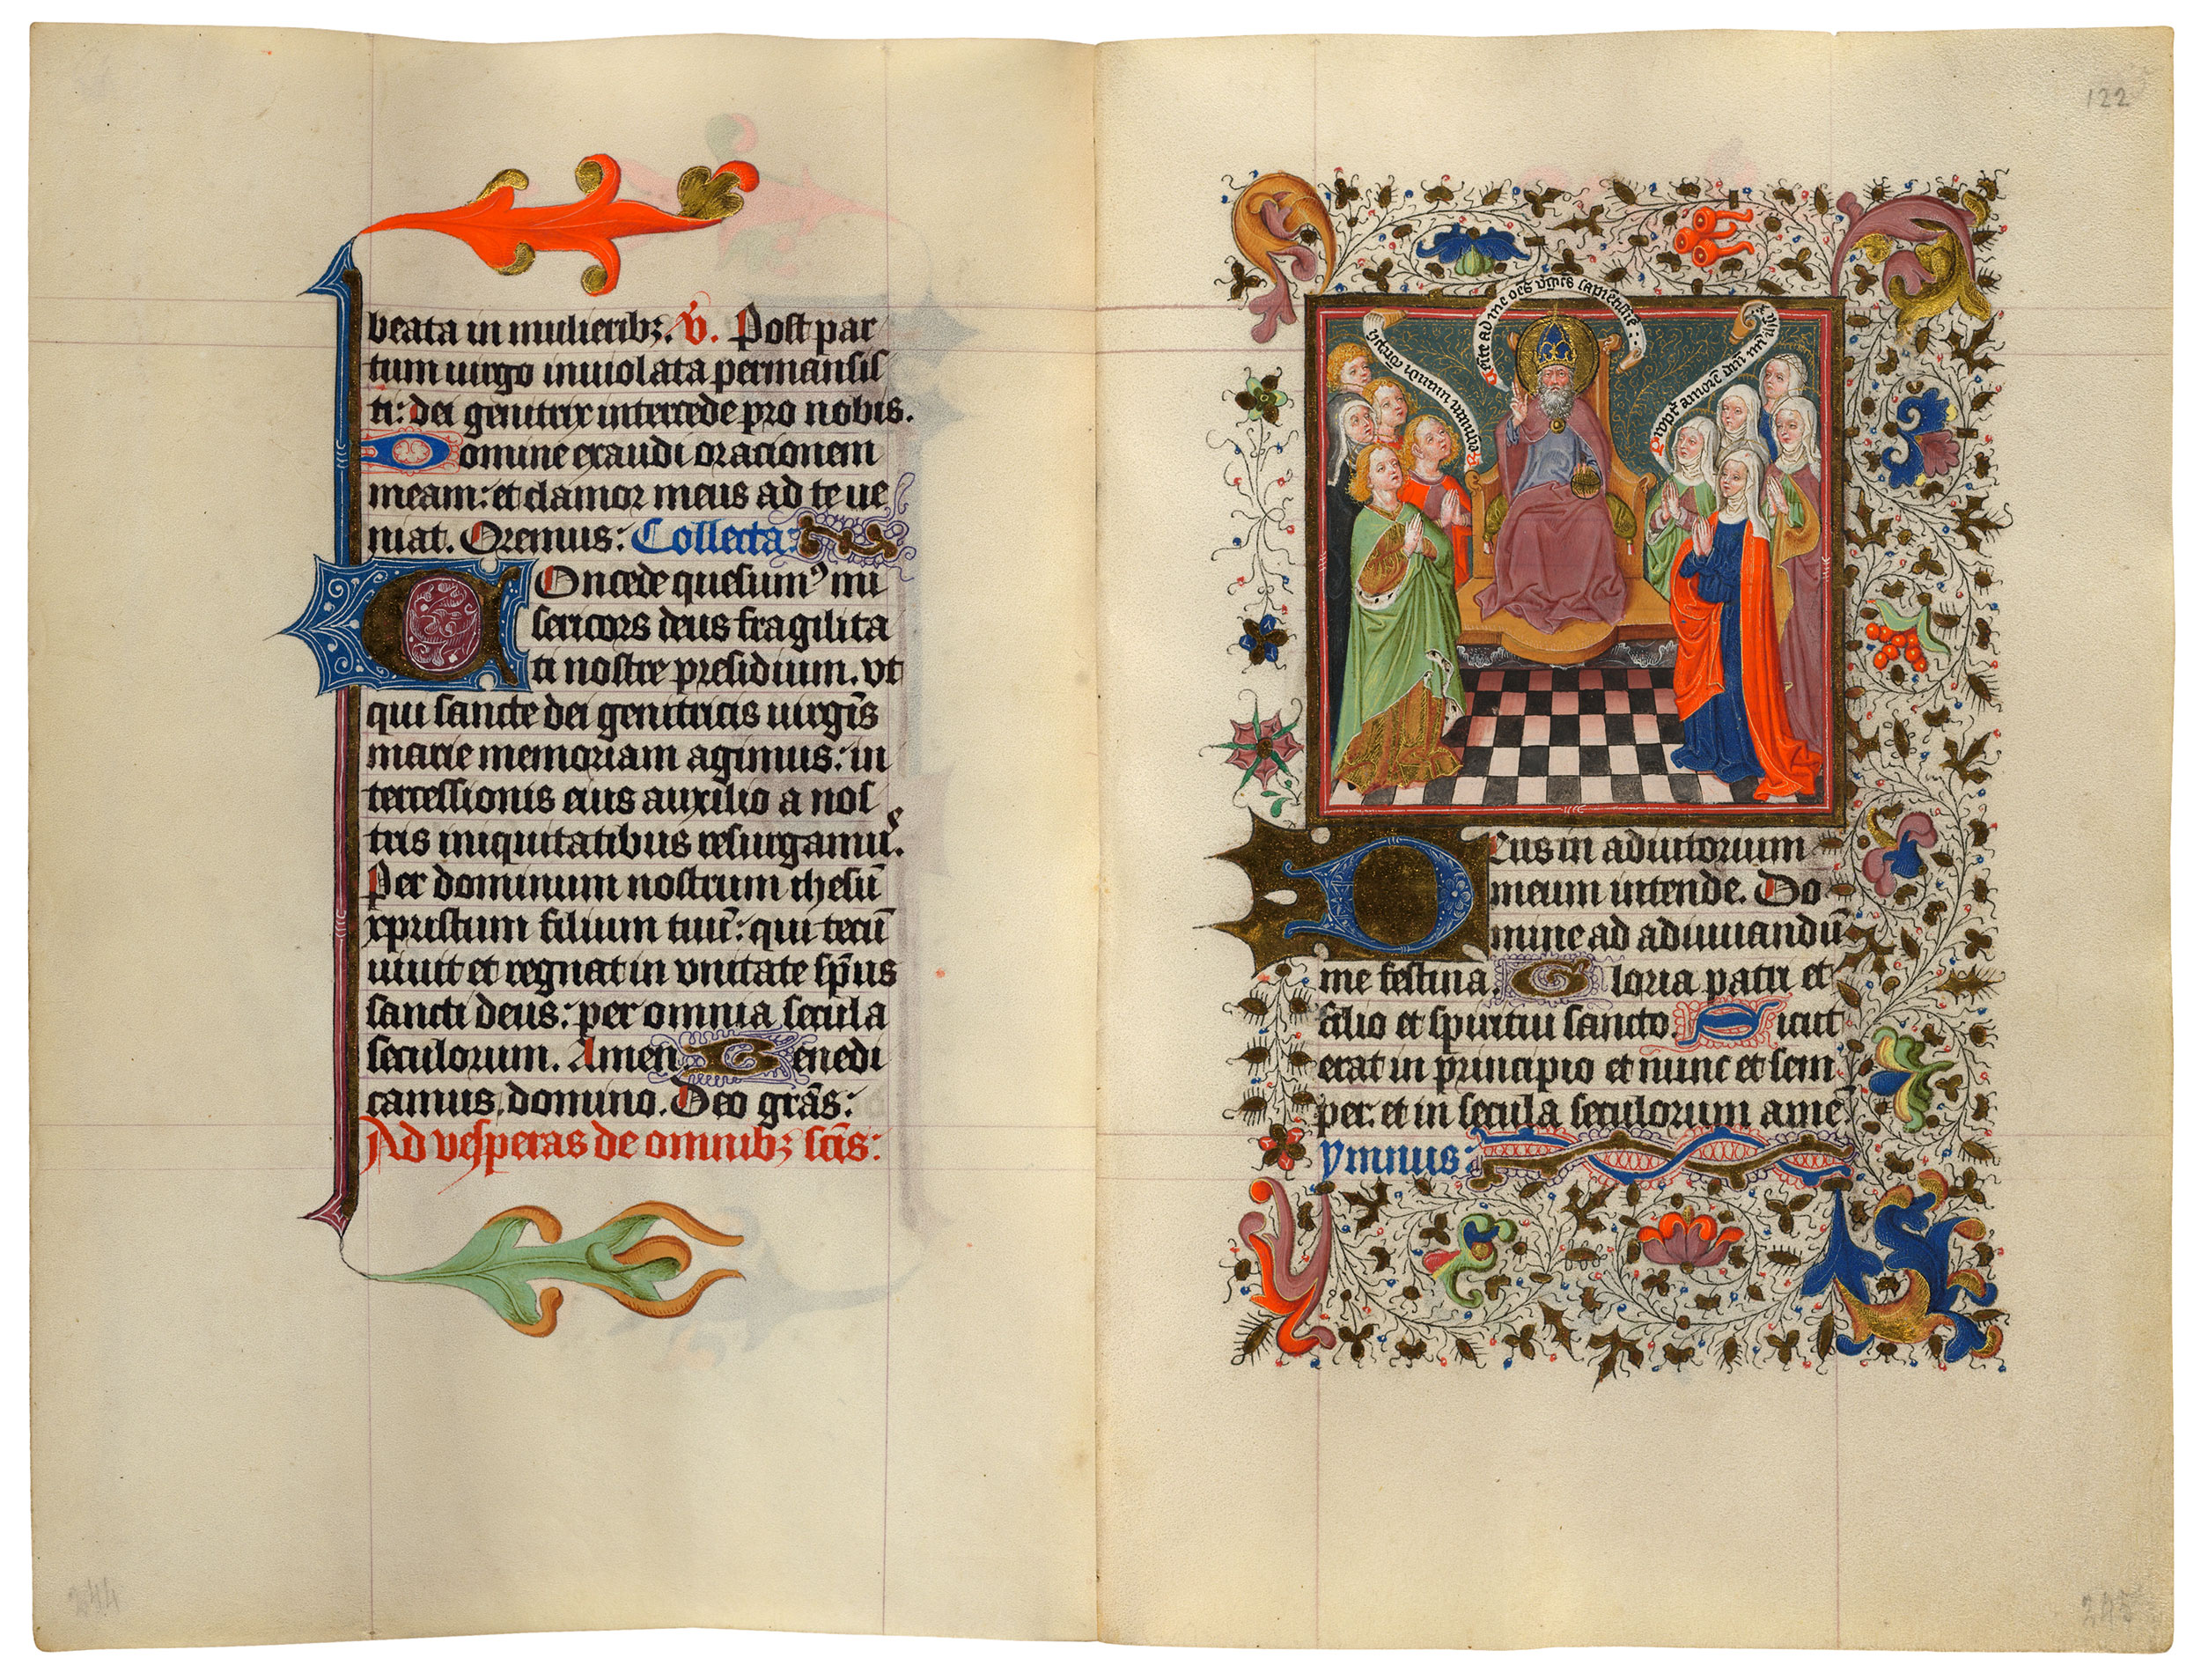 beata in mulieribꝫ. V. Post par
tum uirgo inuiolata permansis
ti: dei genitrix intercede pro nobis.
Domine exaudi orationem
meam: et clamor meus ad te ue
niat. Oremus: Collecta:
Concede quesumꝰ mi
sericors deus fragilita
ti nostre presidium. vt
qui sancte dei genitricis uirgīs
marie memoriam agimus: in
tercessionis eius auxilio a nos
tris iniquitatibus resurgamus.
Per dominum nostrum ihesū
xpristum filium tuū: qui tecū
uiuit et regnat in vnitate sp̄us
sancti deus: per omnia secula
seculorum. Amen. Benedi
camus domino. Deo grās:
Ad vesperas de omnibꝫ scīs:
244
122
Venite ad me oēs
Propt amorē dn̄i
Deus in adiutorium
meum intende. Do
mine ad adiuuandū
me festina. Gloria patri et
filio et spiritui sancto. Sicut
erat in principio et nunc et sem
per: et in secula seculorum amē.
ymnus:
245